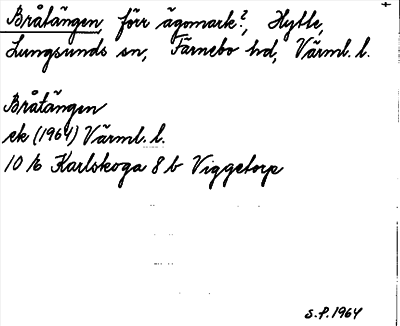 Bråtängen, förr ägomark?, Hytte,
Lungsunds sn, Färnebo hd, Värml. l.
Bråtängen
ek (1964) Värml. l.
10 b Karlskoga 8 b Viggetorp
S.P. 1964